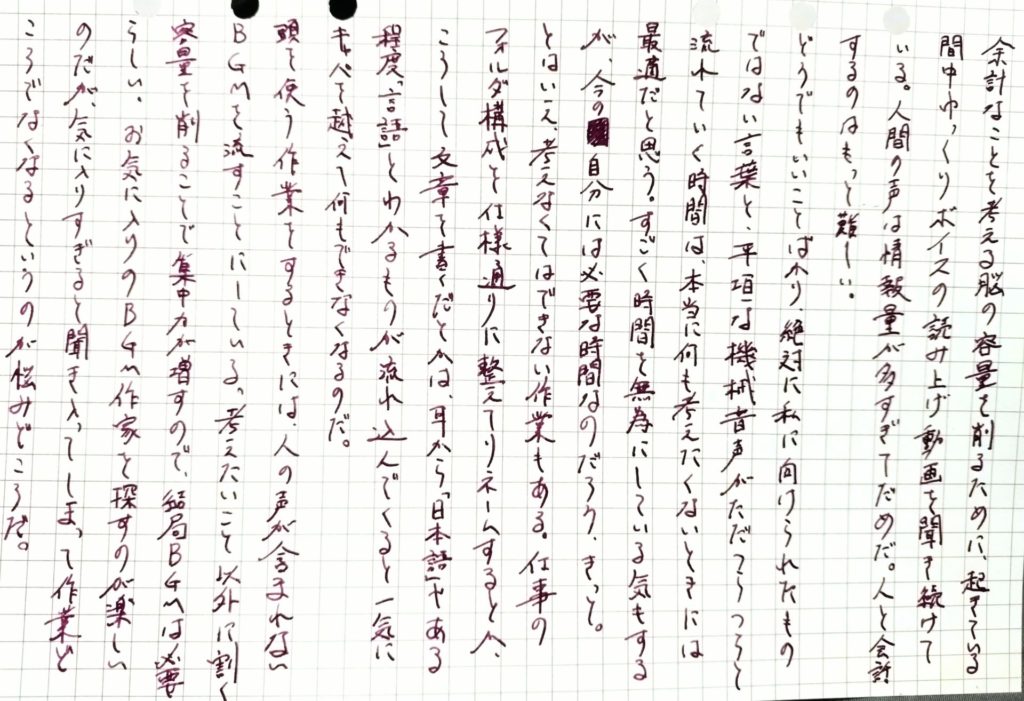 余計なことを考える脳の容量を削るために、起きている
間中ゆっくりボイスの読み上げ動画を聞き続けて
いる。人間の声は情報量が多すぎてだめだ。人と会話
するのはもっと難しい。
どうでもいいことばかり、絶対に私に向けられたもの
ではない言葉と、平坦な機械音声がただつらつらと
流れていく時間は、本当に何も考えたくないときには
最適だと思う。すごく時間を無為にしている気もする
が、今の自分には必要な時間なのだろう、きっと。
とはいえ、考えなくてはできない作業もある。仕事の
フォルダ構成を仕様通りに整えてリネームするとか、
こうして文章を書くだとかは、耳から「日本語」やある
程度「言語」とわかるものが流れ込んでくると一気に
キャパを越えて何もできなくなるのだ。
頭を使う作業をするときには、人の声が含まれない
BGMを流すことにしている。考えたいこと以外に割く
容量を削ることで集中力が増すので、結局BGMは必要
らしい。お気に入りのBGM作家を探すのが楽しい
のだが、気に入りすぎると聞き入ってしまって作業ど
ころでなくなるというのが悩みどころだ。